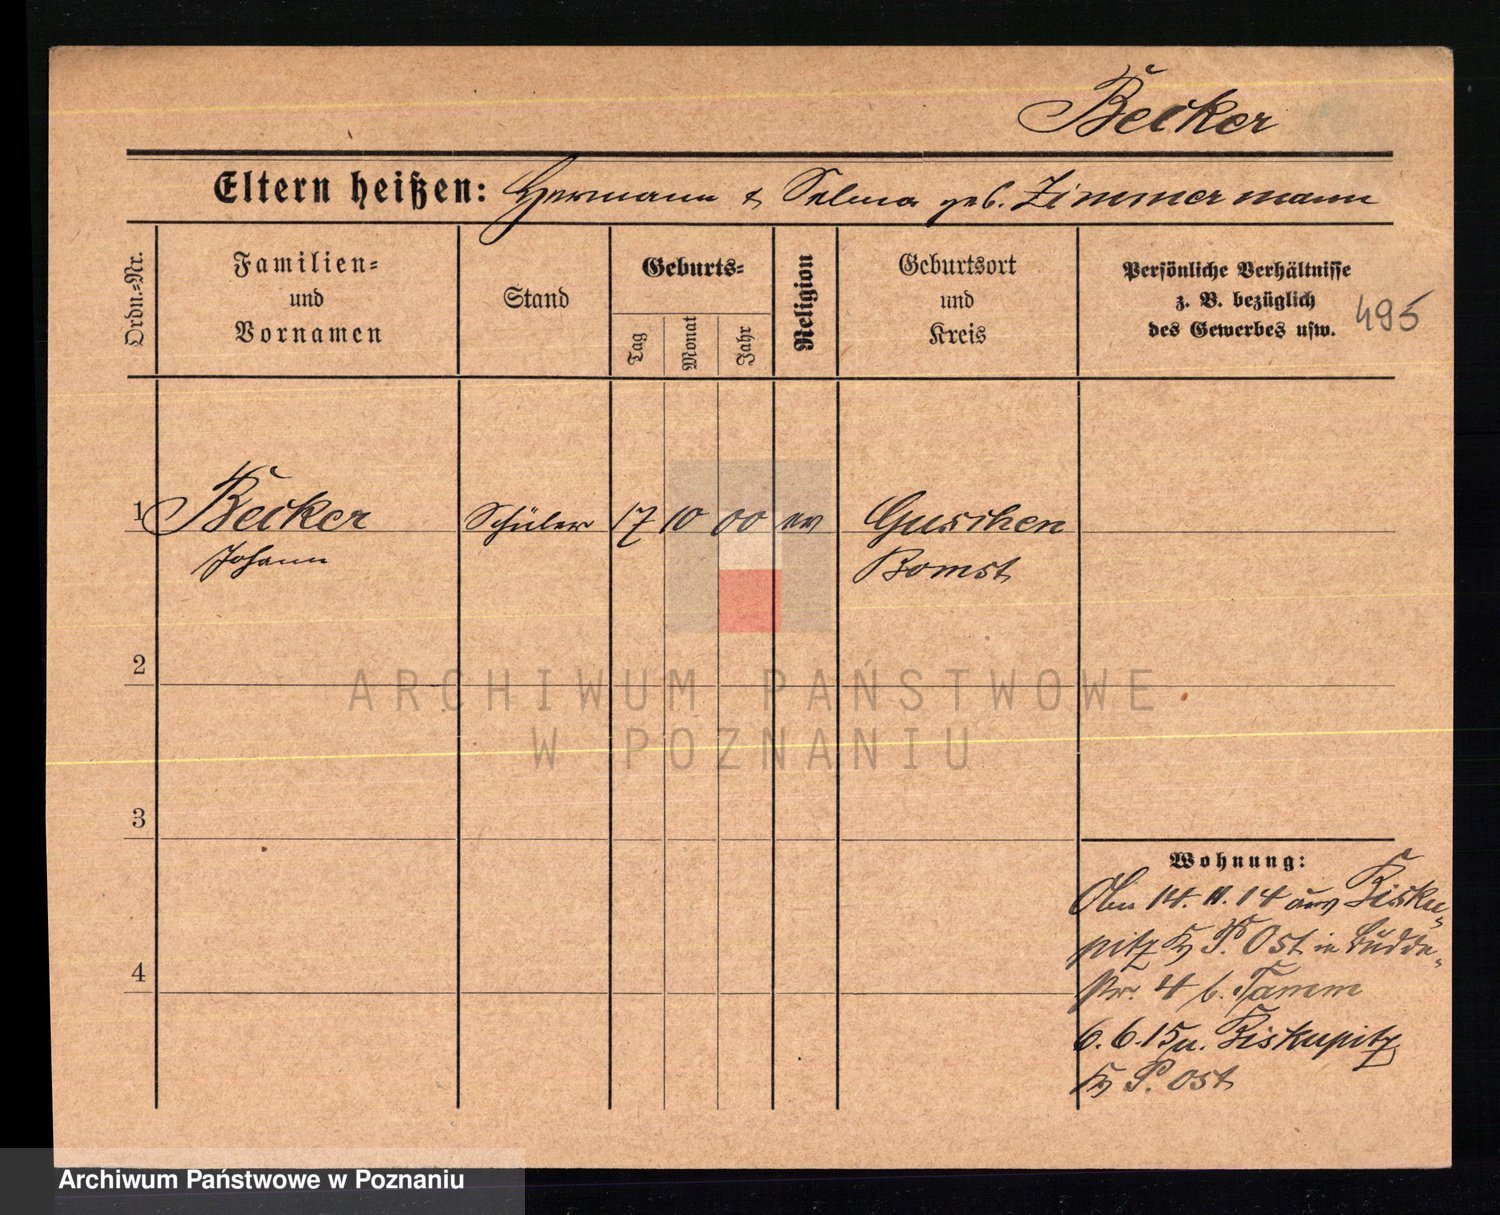 Becker
Eltern heißen: Hermann & Selma geb. Zimmermann
Ordn.-Nr.
Familien-
und
Vornamen
Stand
Geburts-
Tag
Monat
Jahr
Religion
Geburtsort
und
Kreis
Persönliche Verhältnisse
z. B. bezüglich
des Gewerbes usw.
495
1 Becker Schüler 17 10 00 ev Guschen
Johann Bomst
2
ARCHIWUM PAŃSTWOWE
W POZNANIU
3
Wohnung:
14. 11. 14 aus Bisku-
pitz Kr P. Ost in Budde-
4
str. 4 b. Tamm
6. 6. 15 n. Biskupitz
Kr P. Ost
Archiwum Państwowe w Poznaniu